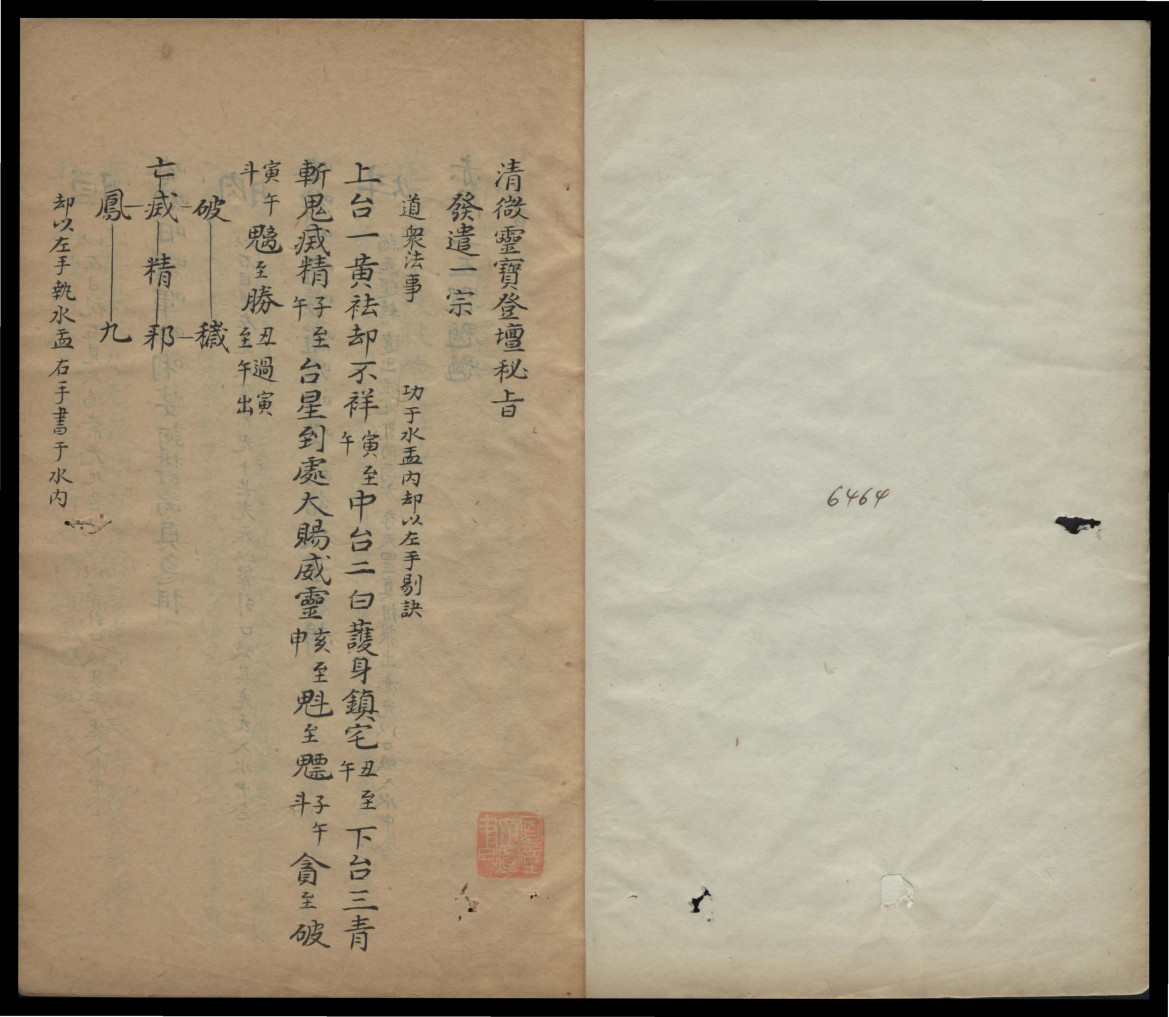 6464
清微靈寶登壇秘旨
發遣一宗
道衆法事 功于水盂内却以左手剔訣
上台一黃祛却不祥寅至午中台二白護身鎮宅丑至午下台三青
斬鬼滅精子至午台星到處大賜威靈亥至申魁至魒子午斗貪至破
寅午斗魒至勝丑過寅至午出
破 穢
亡滅精邪
鳳 九
却以左手執水盂右手書于水内